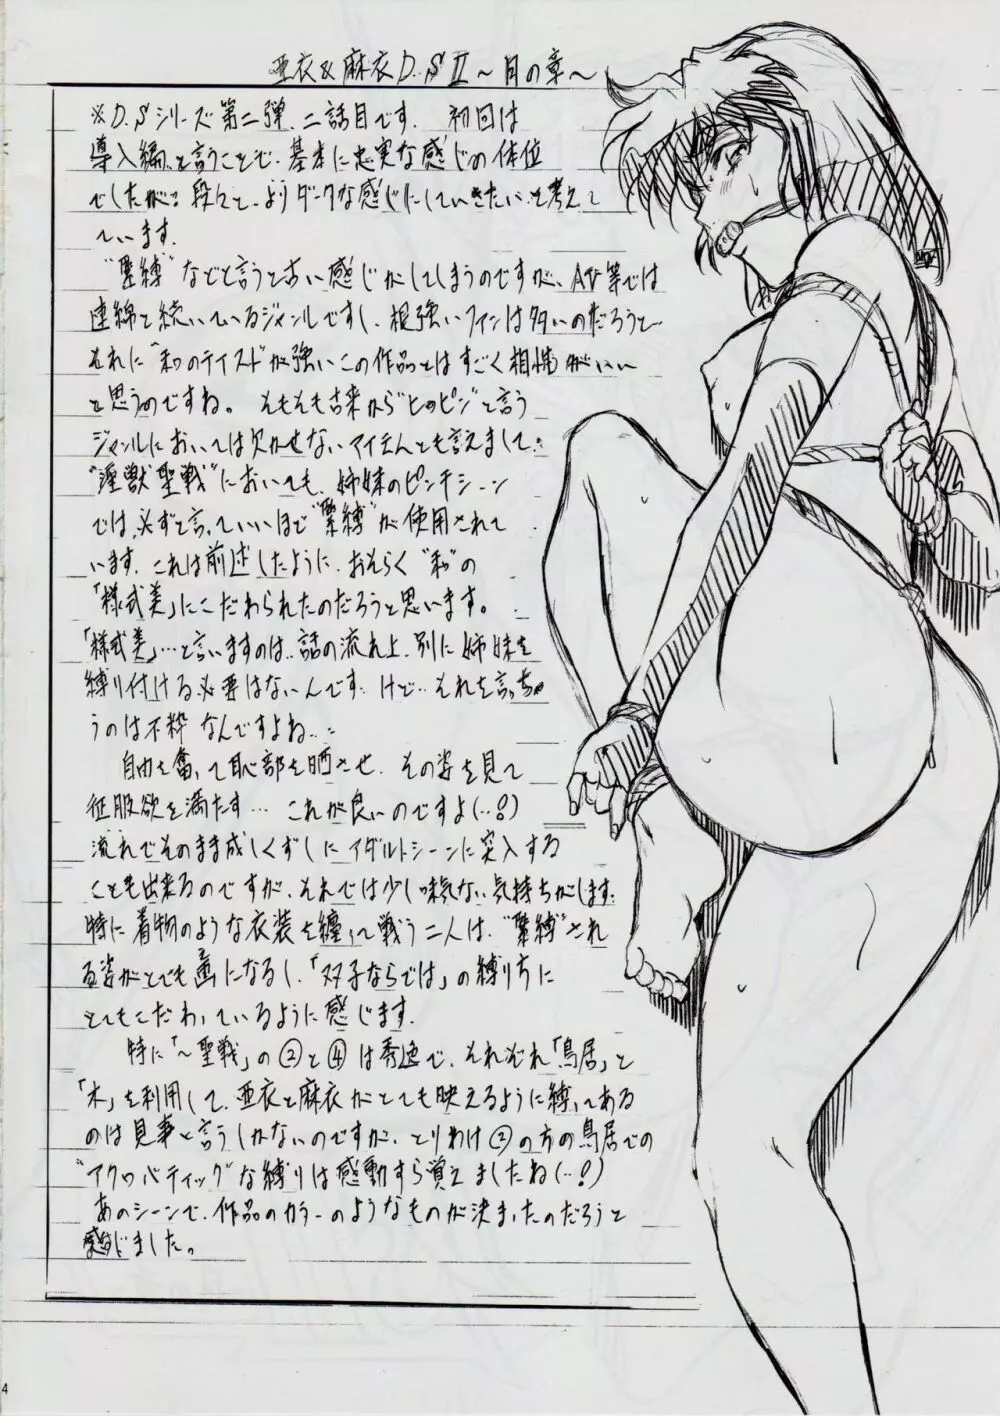 亜衣&麻衣D.SⅡ～月の章～
※D.Sシリーズ第二弾、二話目です。 初回は
導入編、と言うことで、基本に忠実な感じの体位
でしたが、段々と、よりダークな感じにしていきたい、と考えて
います。
"緊縛"などと言うと古い感じがしてしまうのですが、AV等では
連綿と続いているジャンルですし、根強いファンは多いのだろうと…
それに"和のテイスト"が強いこの作品とはすごく相性がいい
と思うのですね。そもそも古来から"ヒロピン"と言う
ジャンルにおいては欠かせないアイテムとも言えまして…
"淫獣聖戦"においても、姉妹のピンチシーン
では、必ずと言っていいほど"緊縛"が使用されて
います。これは前述したように、おそらく"和"の
「様式美」にこだわられたのだろうと思います。
「様式美」…と言いますのは、話の流れ上、別に姉妹を
縛り付ける必要はないんです。けど…それを言っちゃ
うのは不粋なんですよね…
自由を奪って恥部を晒させ、その姿を見て
征服欲を満たす… これが良いのですよ(…!)
流れでそのまま成しくずしにアダルトシーンに突入する
ことも出来るのですが、それでは少し味気ない気持ちがします。
特に着物のような衣装を纏って戦う二人は、"緊縛"され
る姿がとても画になるし、「双子ならでは」の縛り方に
とてもこだわっているように感じます。
特に「～聖戦」の②と④は秀逸で、それぞれ「鳥居」と
「木」を利用して、亜衣と麻衣がとても映えるように縛ってある
のは見事と言うしかないのですが、とりわけ②の方の鳥居での
"アクロバティック"な縛りは感動すら覚えましたね(…!)
あのシーンで、作品のカラーのようなものが決まったのだろうと
感じました。
4